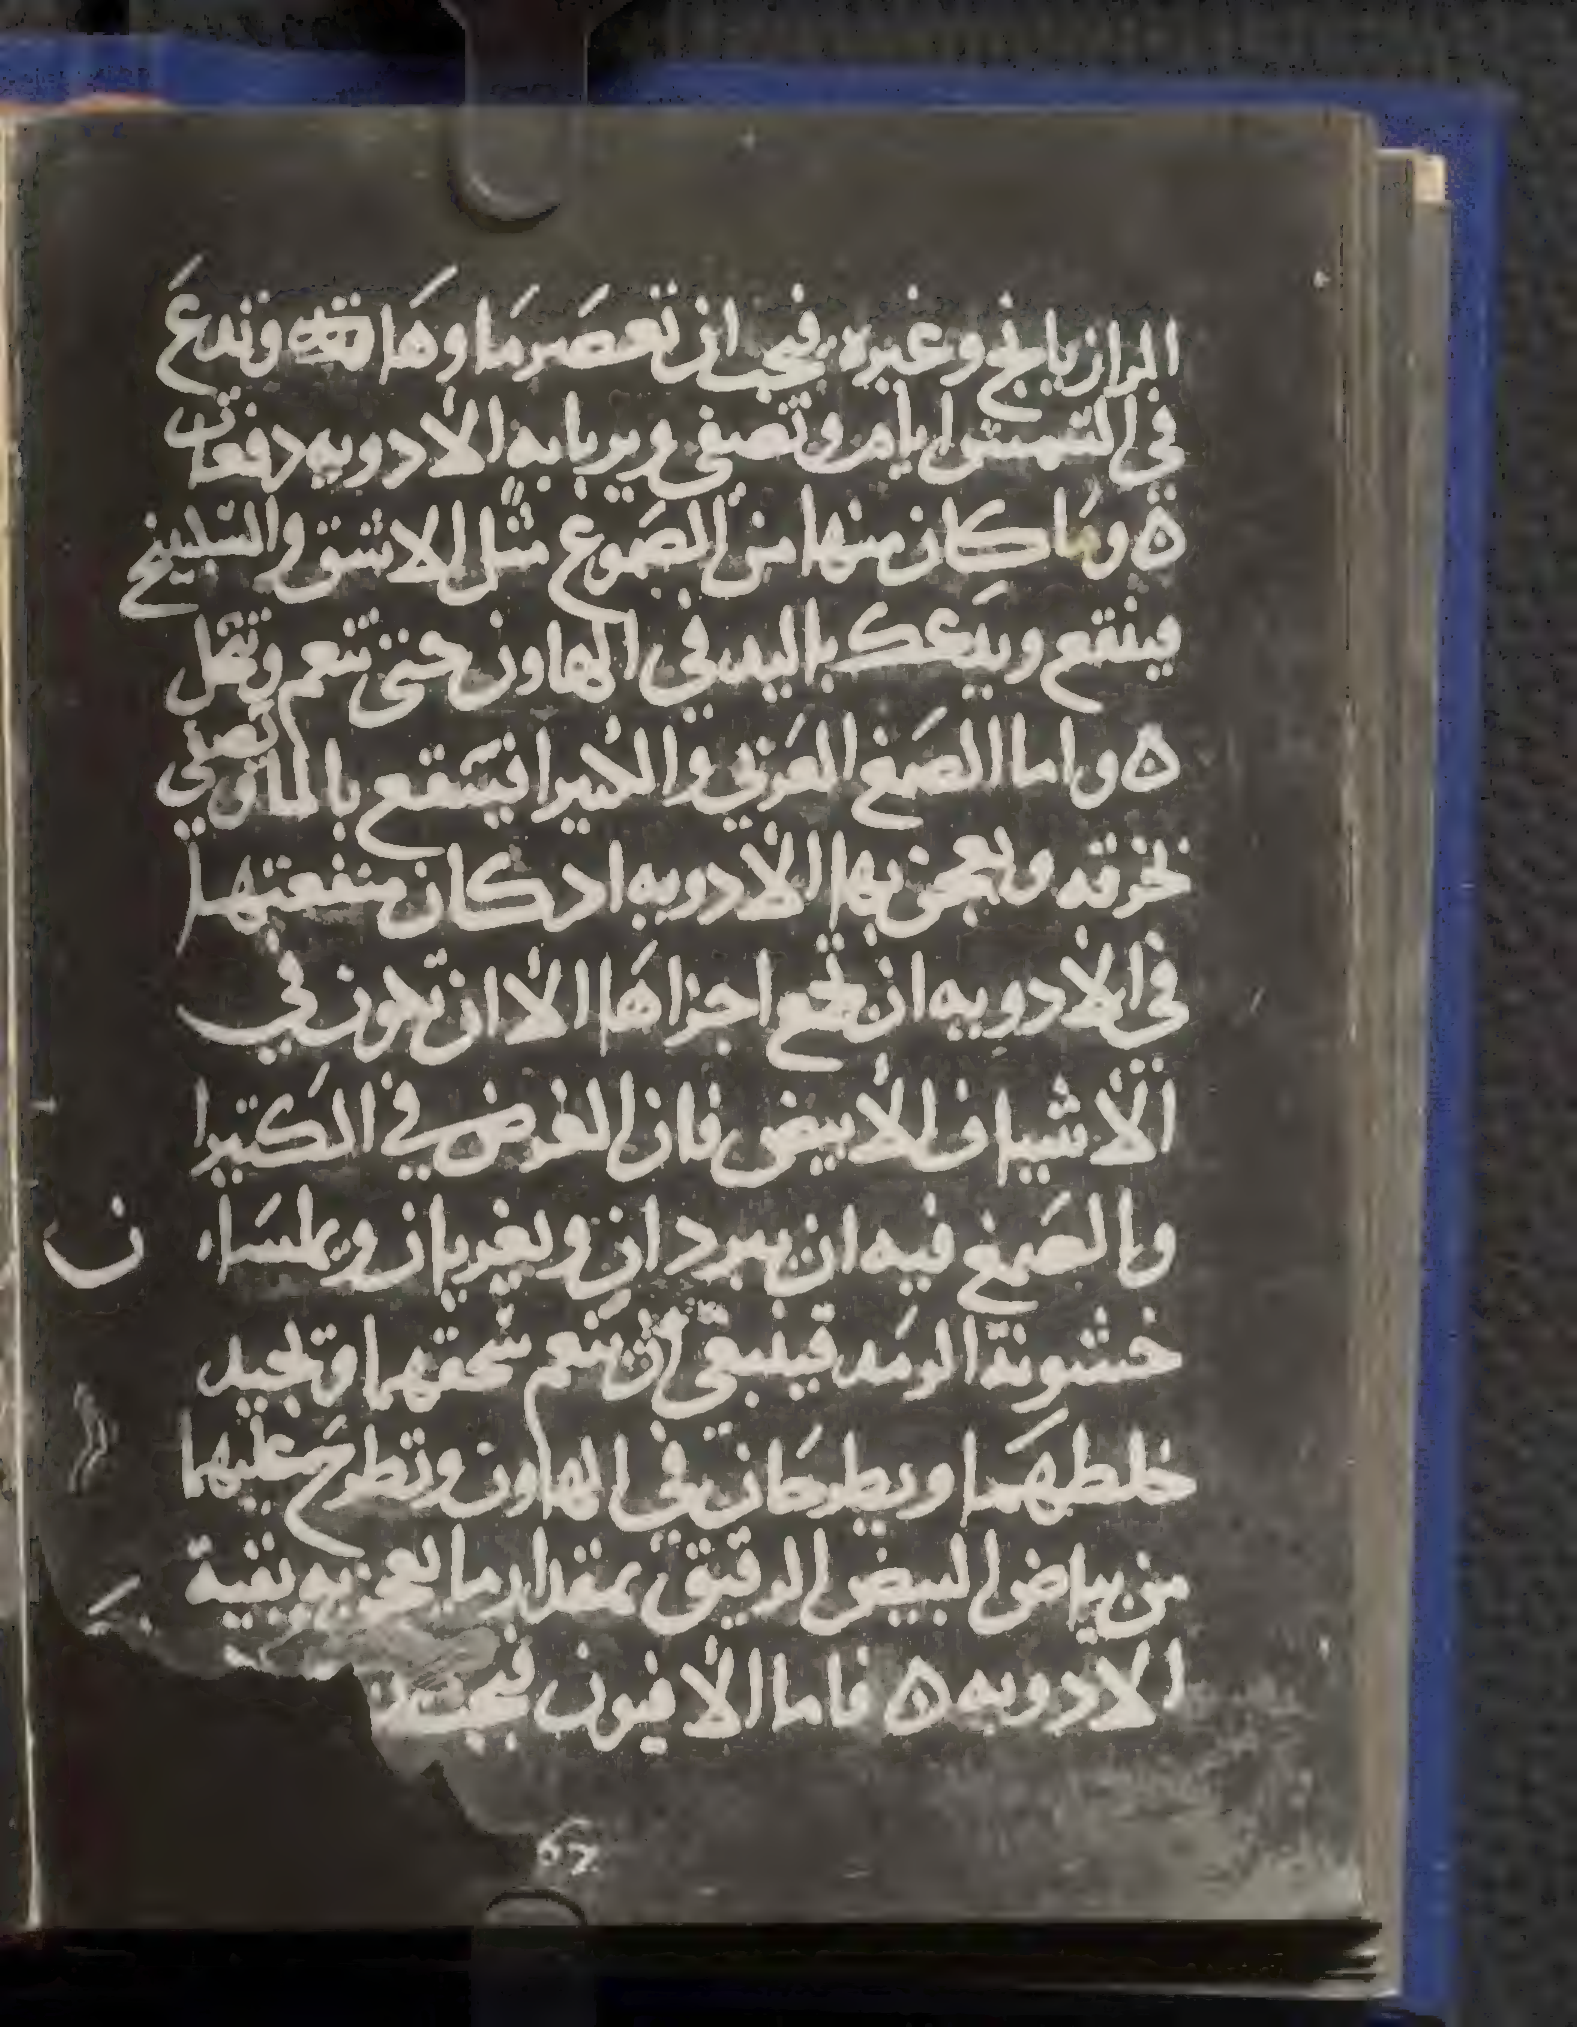 الرازيانج وغيره فيجب ان تعصر ماوها وتدع
في الشمس ايام وتصفى ويربا به الادويه دفعات
ه وما كان منها من الصموغ مثل الاشق والسكبينج
فينقع ويدعك باليد في الهاون حتى تنعم وتنحل
ه واما الصمغ العربي والكثيرا فينقع بالماء وتصفي
بخرقه وتعجن بها الادويه اد كان منفعتها
في الادويه ان تجمع اجزاها الا ان تكون في
الاشياف الابيض فان الغرض في الكتيرا
والصمغ فيه ان يبردان ويغريان ويملسا ن
خشونة الرمد فينبغي ان تنعم سحقهما وتجيد
خلطهما ويطرحان في الهاون وتطرح عليهما
من بياض البيض الرقيق بمقدار ما يعجن به بقية
الادويه ه فاما الافيون فيجب
67